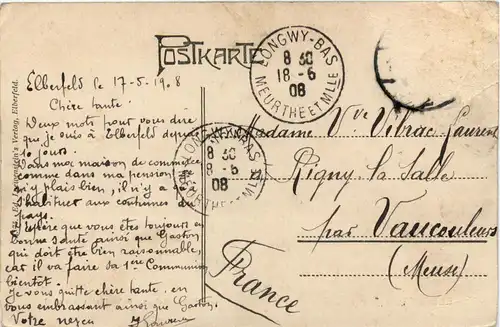 POSTKARTE
LONGWY-BAS
8 30
18-6
08
MEURTHE ET MLLE
LONGWY-BAS
8 30
18-6
08
MEURTHE ET MLLE
Elberfeld le 17-5-1908
Chère tante.
Deux mots pour vous dire
que je suis à Elberfeld depuis
jours.
Dans ma maison de commerce
comme dans ma pension je
m'y plais bien, il n'y a
s'habituer aux coutumes du
pays.
J'espère que vous êtes toujours en
bonne santé ainsi que Gaston
qui doit être bien raisonnable,
car il va faire sa 1ère Communion
bientôt.
Je vous quitte chère tante, en
vous embrassant ainsi que Gaston.
Votre neveu
Madame Vve Vitrac Laurent
Rigny la Salle
par Vaucouleurs
(Meuse)
France
Verlag, Elberfeld.